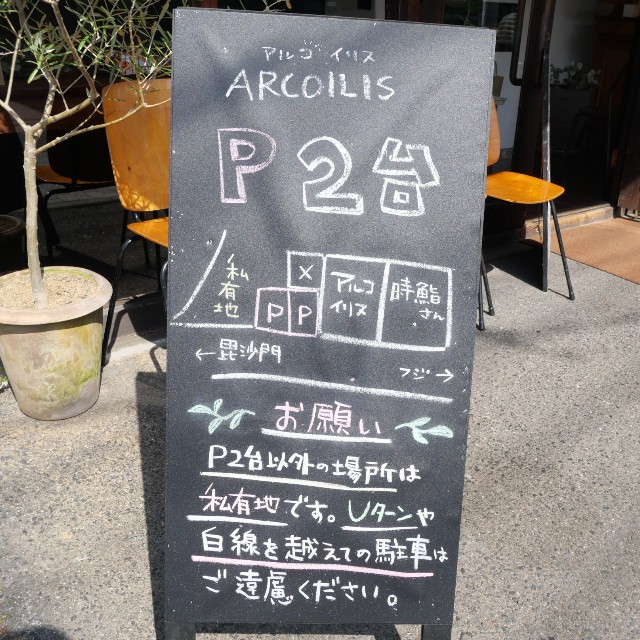 アルゴイリス
ARCOILIS
P 2台
私有地
X
P P
アルコイリス
時鮨さん
←毘沙門
フジ→
お願い
P2台以外の場所は
私有地です。Uターンや
白線を越えての駐車は
ご遠慮ください。